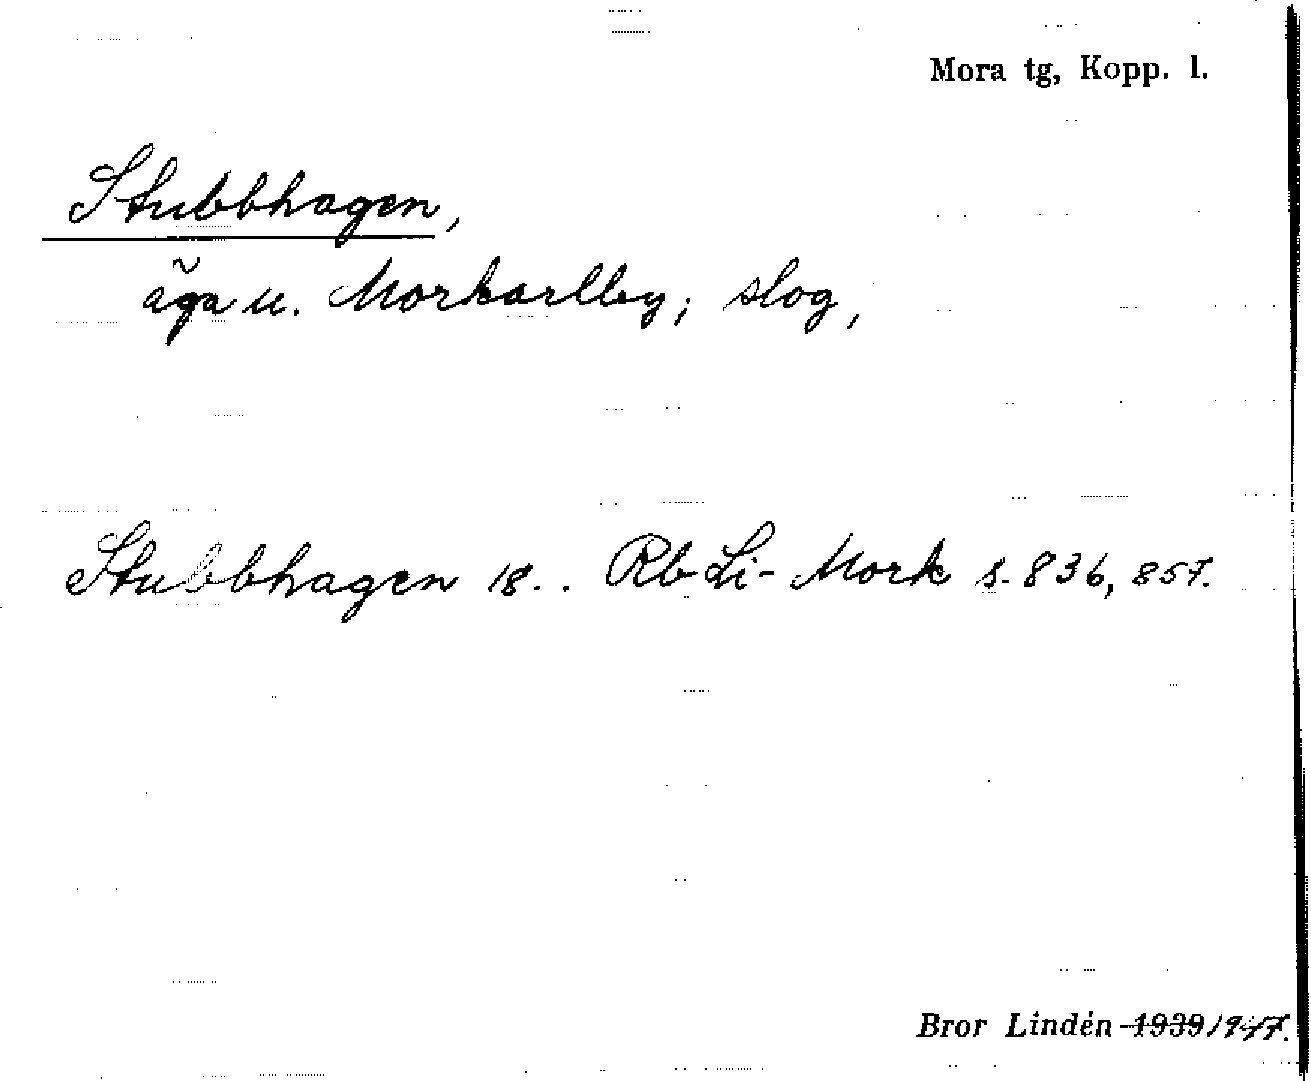 Mora tg, Kopp. l.
Stubbhagen,
äga u. Morkarlby; slog,
Stubbhagen 18.. Rb Li-Mork s. 836, 857.
Bror Lindén 1939 1947.